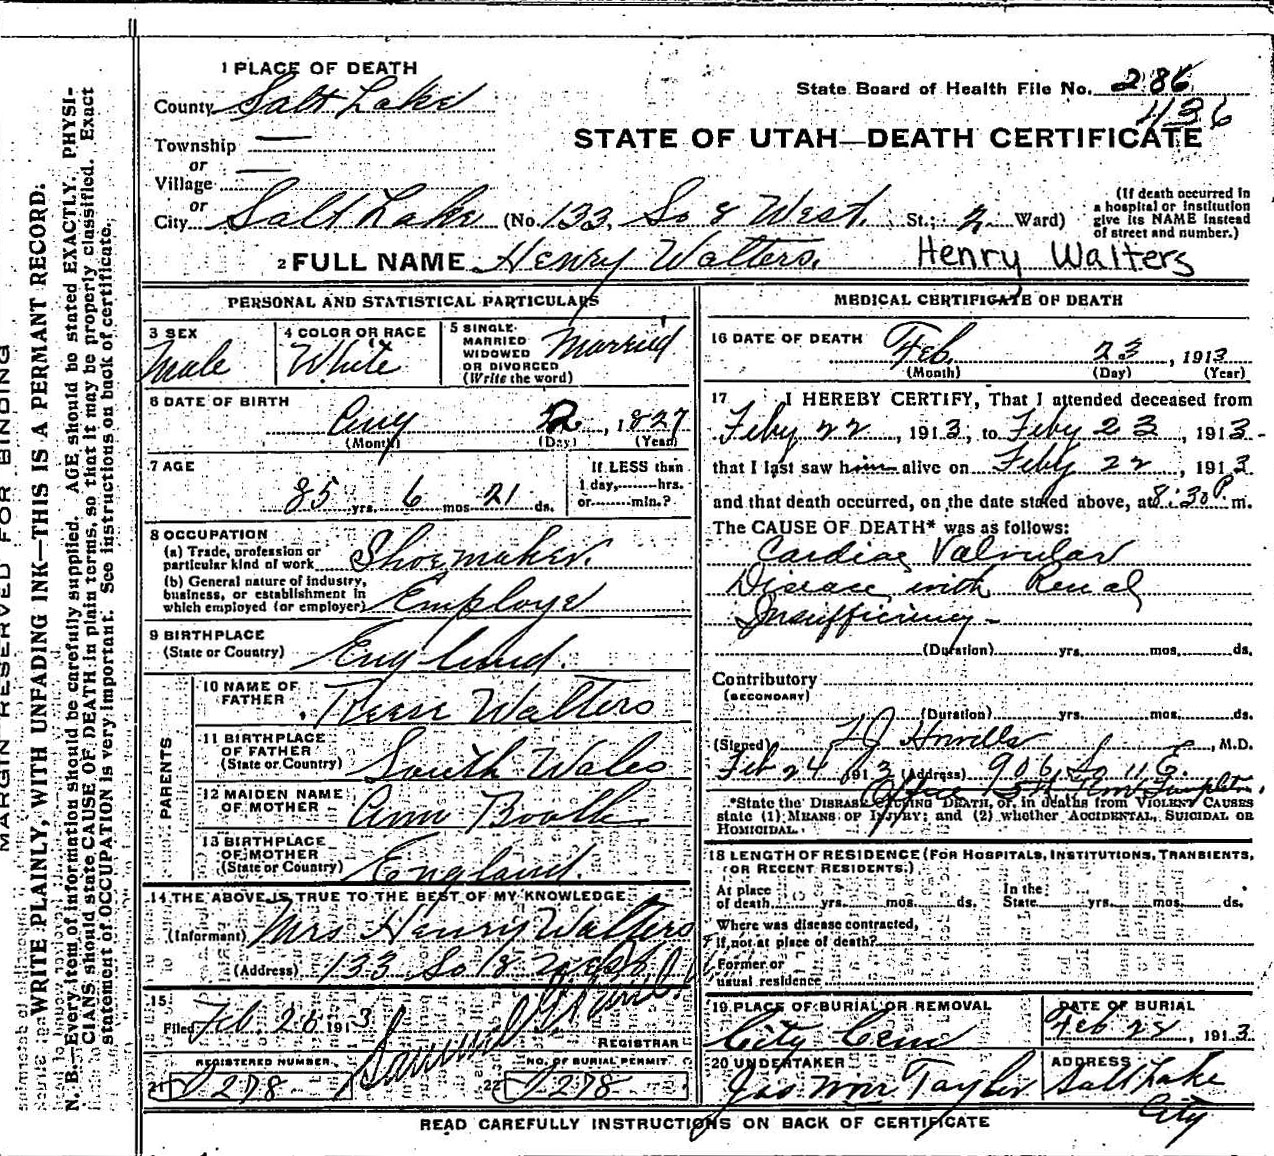 MARGIN RESERVED FOR BINDING
WRITE PLAINLY, WITH UNFADING INK—THIS IS A PERMANT RECORD.
N. B.—Every item of information should be carefully supplied. AGE should be stated EXACTLY. PHYSI-
CIANS should state CAUSE OF DEATH in plain terms, so that it may be properly classified. Exact
statement of OCCUPATION is very important. See instructions on back of certificate.
1 PLACE OF DEATH
County Salt Lake
State Board of Health File No. 286
1136
Township —
or
Village —
or
STATE OF UTAH—DEATH CERTIFICATE
City Salt Lake (No. 133 So 8 West. St.; 2 Ward)
(If death occurred in
a hospital or institution
give its NAME instead
of street and number.)
2 FULL NAME Henry Walters. Henry Walters
PERSONAL AND STATISTICAL PARTICULARS
3 SEX
Male
4 COLOR OR RACE
White
5 SINGLE
MARRIED
WIDOWED
OR DIVORCED
(Write the word)
Married
6 DATE OF BIRTH
Aug 2, 1827
(Month) (Day) (Year)
7 AGE
85 yrs. 6 mos 21 ds.
If LESS than
1 day, hrs.
or min.?
8 OCCUPATION
(a) Trade, profession or
particular kind of work Shoemaker.
(b) General nature of industry,
business, or establishment in
which employed (or employer) Employe
9 BIRTHPLACE
(State or Country) England.
PARENTS
10 NAME OF
FATHER Reese Walters
11 BIRTHPLACE
OF FATHER
(State or Country) South Wales
12 MAIDEN NAME
OF MOTHER Ann Booth
13 BIRTHPLACE
OF MOTHER
(State or Country) England.
14 THE ABOVE IS TRUE TO THE BEST OF MY KNOWLEDGE
(Informant) Mrs Henry Walters
(Address) 133 So 8 West
15
Filed Feb. 26 1913
REGISTRAR
REGISTERED NUMBER
21 278
NO. OF BURIAL PERMIT
22 278
MEDICAL CERTIFICATE OF DEATH
16 DATE OF DEATH Feb. 23, 1913
(Month) (Day) (Year)
17 I HEREBY CERTIFY, That I attended deceased from
Feby 22, 1913, to Feby 23, 1913-
that I last saw him alive on Feby 22, 1913
and that death occurred, on the date stated above, at 8:30 P. m.
The CAUSE OF DEATH* was as follows:
Cardiac Valvular
Disease, with Renal
Insufficiency-
(Duration) yrs. mos. ds.
Contributory
(SECONDARY)
(Duration) yrs. mos. ds.
(Signed) Howells, M.D.
Feb 24 1913 (Address) 906 So 11 E.
Office Templeton.
*State the DISEASE CAUSING DEATH, or, in deaths from VIOLENT CAUSES
state (1) MEANS OF INJURY; and (2) whether ACCIDENTAL, SUICIDAL OR
HOMICIDAL.
18 LENGTH OF RESIDENCE (FOR HOSPITALS, INSTITUTIONS, TRANSIENTS,
OR RECENT RESIDENTS.)
At place
of death yrs. mos. ds.
In the
State yrs. mos. ds.
Where was disease contracted,
If not at place of death?
Former or
usual residence
19 PLACE OF BURIAL OR REMOVAL
City Cem
DATE OF BURIAL
Feb 1913
20 UNDERTAKER
Jos Wm Taylor
ADDRESS
Salt Lake
City
READ CAREFULLY INSTRUCTIONS ON BACK OF CERTIFICATE